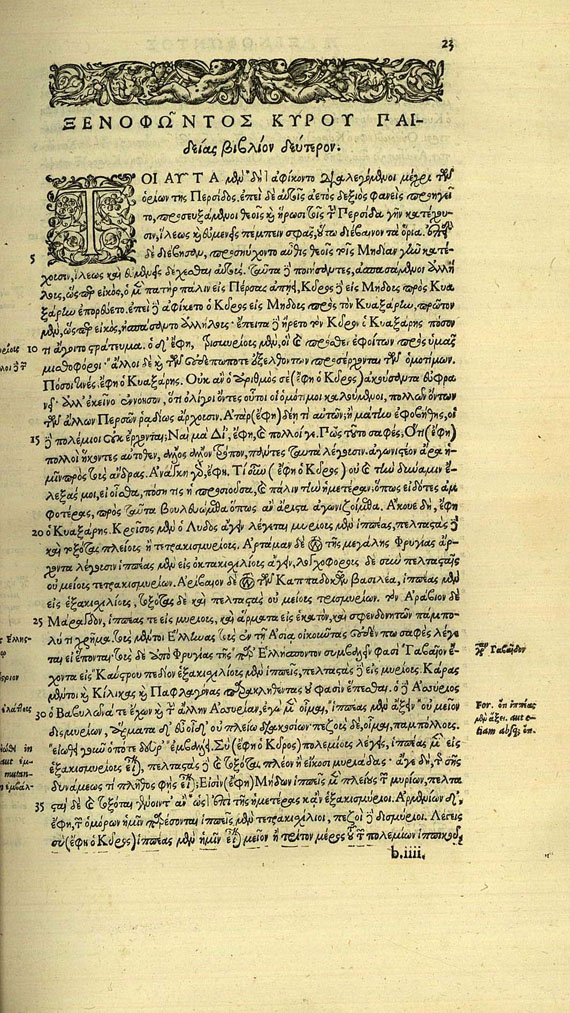 23
ΞΕΝΟΦΩ͂ΝΤΟΣ ΚΥΡΟΥ ΠΑΙ-
δείας βιβλίον δεύτερον.
ΤΟΙΑΥΤΑ μὲν δὴ ἀφίκοντο διαλεγόμενοι μέχρι τῶν
ὁρίων της Περσίδος. ἐπεὶ δὲ αὐτοῖς ἀετὸς δεξιὸς φανεὶς προηγεῖ
το, προσευξάμενοι θεοῖς κỳ ἥρωσι τοῖς τ̀ Περσίδα γῆν κατέχου-
σιν, ἵλεως κỳ εὐμενεῖς πέμπειν σφᾶς, οὕτω διέβαινον τὰ ὅρια. ἐπεὶ
5 δὲ διέβησαν, προσηύχοντο αὖθις θεοῖς τοῖς Μηδίαν γῆν κατέ-
χουσιν, ἵλεως καὶ εὐμενεῖς δέχεσθαι αὐτούς. ταῦτα δὲ ποιήσαντες, ἀσπασάμενοι ἀλλή
λους, ὥσπερ εἰκὸς, ὁ μὲν πατὴρ πάλιν εἰς Πέρσας ἀπῄει, Κῦρος δὲ εἰς Μήδους πρὸς Κυα
ξάρην ἐπορεύετο. ἐπεὶ δὲ ἀφίκετο ὁ Κῦρος εἰς Μήδους πρὸς τὸν Κυαξάρην, πρῶτον
μὲν, ὥσπερ εἰκὸς, ἠσπάσαντο ἀλλήλους· ἔπειτα δὲ ἤρετο τὸν Κῦρον ὁ Κυαξάρης πόσον
10 τι ἄγοι τὸ στράτευμα. ὁ δ', ἔφη, τρισμυρίους μὲν, οἳ καὶ πρόσθεν ἐφοίτων πρὸς ὑμᾶς
μισθοφόροι· ἄλλοι δὲ κỳ τῶν οὐδέποτε ἐξελθόντων προσέρχονται τῶν ὁμοτίμων.
Πόσοι τινές; ἔφη ὁ Κυαξάρης. Οὐκ ἂν ὁ ἀριθμός σε (ἔφη ὁ Κῦρος) ἀκούσαντα εὐφρα
νεῖ· ἀλλ' ἐκεῖνο ἐννόησον, ὅτι ὀλίγοι ὄντες οὗτοι οἱ ὁμότιμοι καλούμενοι, πολλῶν ὄντων
τῶν ἄλλων Περσῶν ῥᾳδίως ἄρχουσιν. Ἀτὰρ (ἔφη) δέῃ τι αὐτῶν, ἢ μάτην ἐφοβήθης, οἱ
15 δὲ πολέμιοι οὐκ ἔρχονται; Ναὶ μὰ Δί', ἔφη, καὶ πολλοί γε. Πῶς τοῦτο σαφές; Ὅτι (ἔφη)
πολλοὶ ἥκοντες αὐτόθεν, ἄλλος ἄλλον τρόπον, πάντες ταυτὰ λέγουσιν. ἀγωνιστέον ἄρα ἡ-
μῖν πρὸς τοὺς ἄνδρας. Ἀνάγκη γὰρ, ἔφη. Τί οὖν (ἔφη ὁ Κῦρος) οὐ καὶ τὴν δύναμιν ἔ-
λεξάς μοι, εἰ οἶσθα, πόση τις ἡ προσιοῦσα, καὶ πάλιν τὴν ἡμετέραν. ὅπως εἰδότες ἀμ
φοτέρας, πρὸς ταῦτα βουλευώμεθα ὅπως ἂν ἄριστα ἀγωνιζοίμεθα. Ἄκουε δὴ, ἔφη
20 ὁ Κυαξάρης. Κροῖσος μὲν ὁ Λυδὸς ἄγειν λέγεται μυρίους μὲν ἱππέας, πελταστὰς δὲ
καὶ τοξότας πλείους ἢ τετρακισμυρίους. Ἀρτάμαν δὲ τὸν τῆς μεγάλης Φρυγίας ἄρ-
χοντα λέγουσιν ἱππέας μὲν εἰς ὀκτακισχιλίους ἄγειν, λογχοφόρους δὲ σὺν πελτασταῖς
οὐ μείους τετρακισμυρίων. Ἀρίβαιον δὲ τὸν τῶν Καππαδοκῶν βασιλέα, ἱππέας μὲν
εἰς ἑξακισχιλίους, τοξότας δὲ καὶ πελταστὰς οὐ μείους τρισμυρίων. τὸν Ἀράβιον δὲ
25 Μάραγδον, ἱππέας τε εἰς μυρίους, καὶ ἅρματα εἰς ἑκατὸν, καὶ σφενδονητῶν πάμπο-
λύ τι χρῆμα. τοὺς μέντοι Ἕλληνας τοὺς ἐν τῇ Ἀσίᾳ οἰκοῦντας οὐδέν πω σαφὲς λέγε
ται εἰ ἕπονται. τοὺς δὲ ἀπὸ Φρυγίας τῆς πρὸς Ἑλλήσποντον συμβαλεῖν φασὶ Γαβαῖον ἔ-
χοντα εἰς Καΰστρου πεδίον ἑξακισχιλίους μὲν ἱππεῖς, πελταστὰς δὲ εἰς μυρίους. Κᾶρας
μέντοι κỳ Κίλικας κỳ Παφλαγόνας παρακληθέντας οὔ φασιν ἕπεσθαι. ὁ δὲ Ἀσσύριος
30 ὁ Βαβυλῶνά τε ἔχων κỳ τ̀ ἄλλην Ἀσσυρίαν, ἐγὼ μὲν οἶμαι, ἱππέας μὲν ἄξειν οὐ μεῖον
δισμυρίων, ἅρματα δ' εὖ οἶδ' οὐ πλείω διακοσίων· πεζοὺς δὲ, οἶμαι, παμπόλλους.
εἰώθει γοῦν ὁπότε δεῦρ' ἐμβάλοι. Σύ (ἔφη ὁ Κῦρος) πολεμίους λέγεις, ἱππέας μὲν εἰς
ἑξακισμυρίους εἶναι, πελταστὰς δὲ καὶ τοξότας πλέον ἢ εἴκοσι μυριάδας· ἄγε δὴ, τῆς σῆς
δυνάμεως τί πλῆθος φῂς εἶναι; Εἰσὶν (ἔφη) Μήδων ἱππεῖς μὲν πλείους τῶν μυρίων, πελτα
35 σταὶ δὲ καὶ τοξόται γένοιντ' ἂν ὡς ἐπὶ τῆς ἡμετέρας κἂν ἑξακισμύριοι. Ἀρμενίων δ',
ἔφη, τῶν ὁμόρων ἡμῖν παρέσονται ἱππεῖς μὲν τετρακισχίλιοι, πεζοὶ δὲ δισμύριοι. Λέγεις
σύ (ἔφη ὁ Κῦρος) ἱππέας μὲν ἡμῖν εἶναι μεῖον ἢ τρίτον μέρος τοῦ τῶν πολεμίων ἱππικοῦ,
b.iiii.
γρ. Γάβαιδον
For. ὅτι ἱππέας
μὲν ἄξει. aut e-
tiam absq; ὅτι.